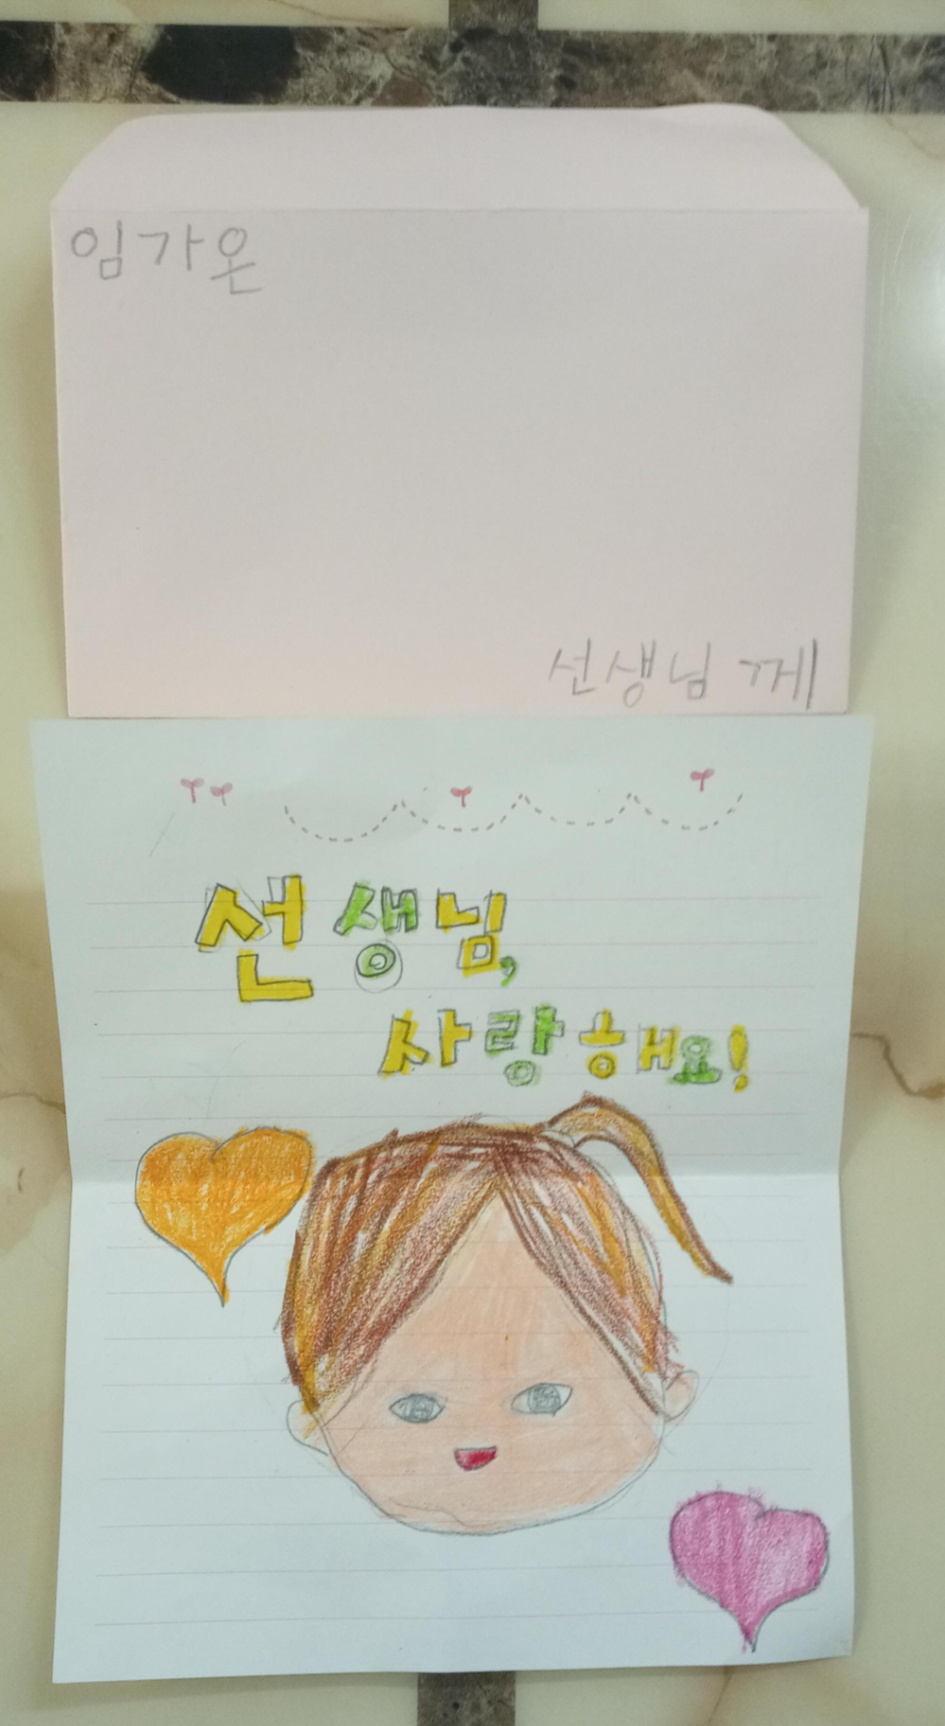 임가온
선생님 께
선생님,
사랑해요!